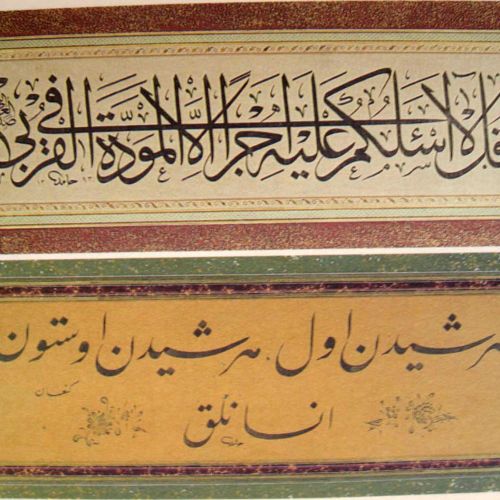 قل لا أسئلكم عليه اجرا الا المودة في القربى
حامد
هر شيدن اول، هر شيدن اوستون
انسانلق